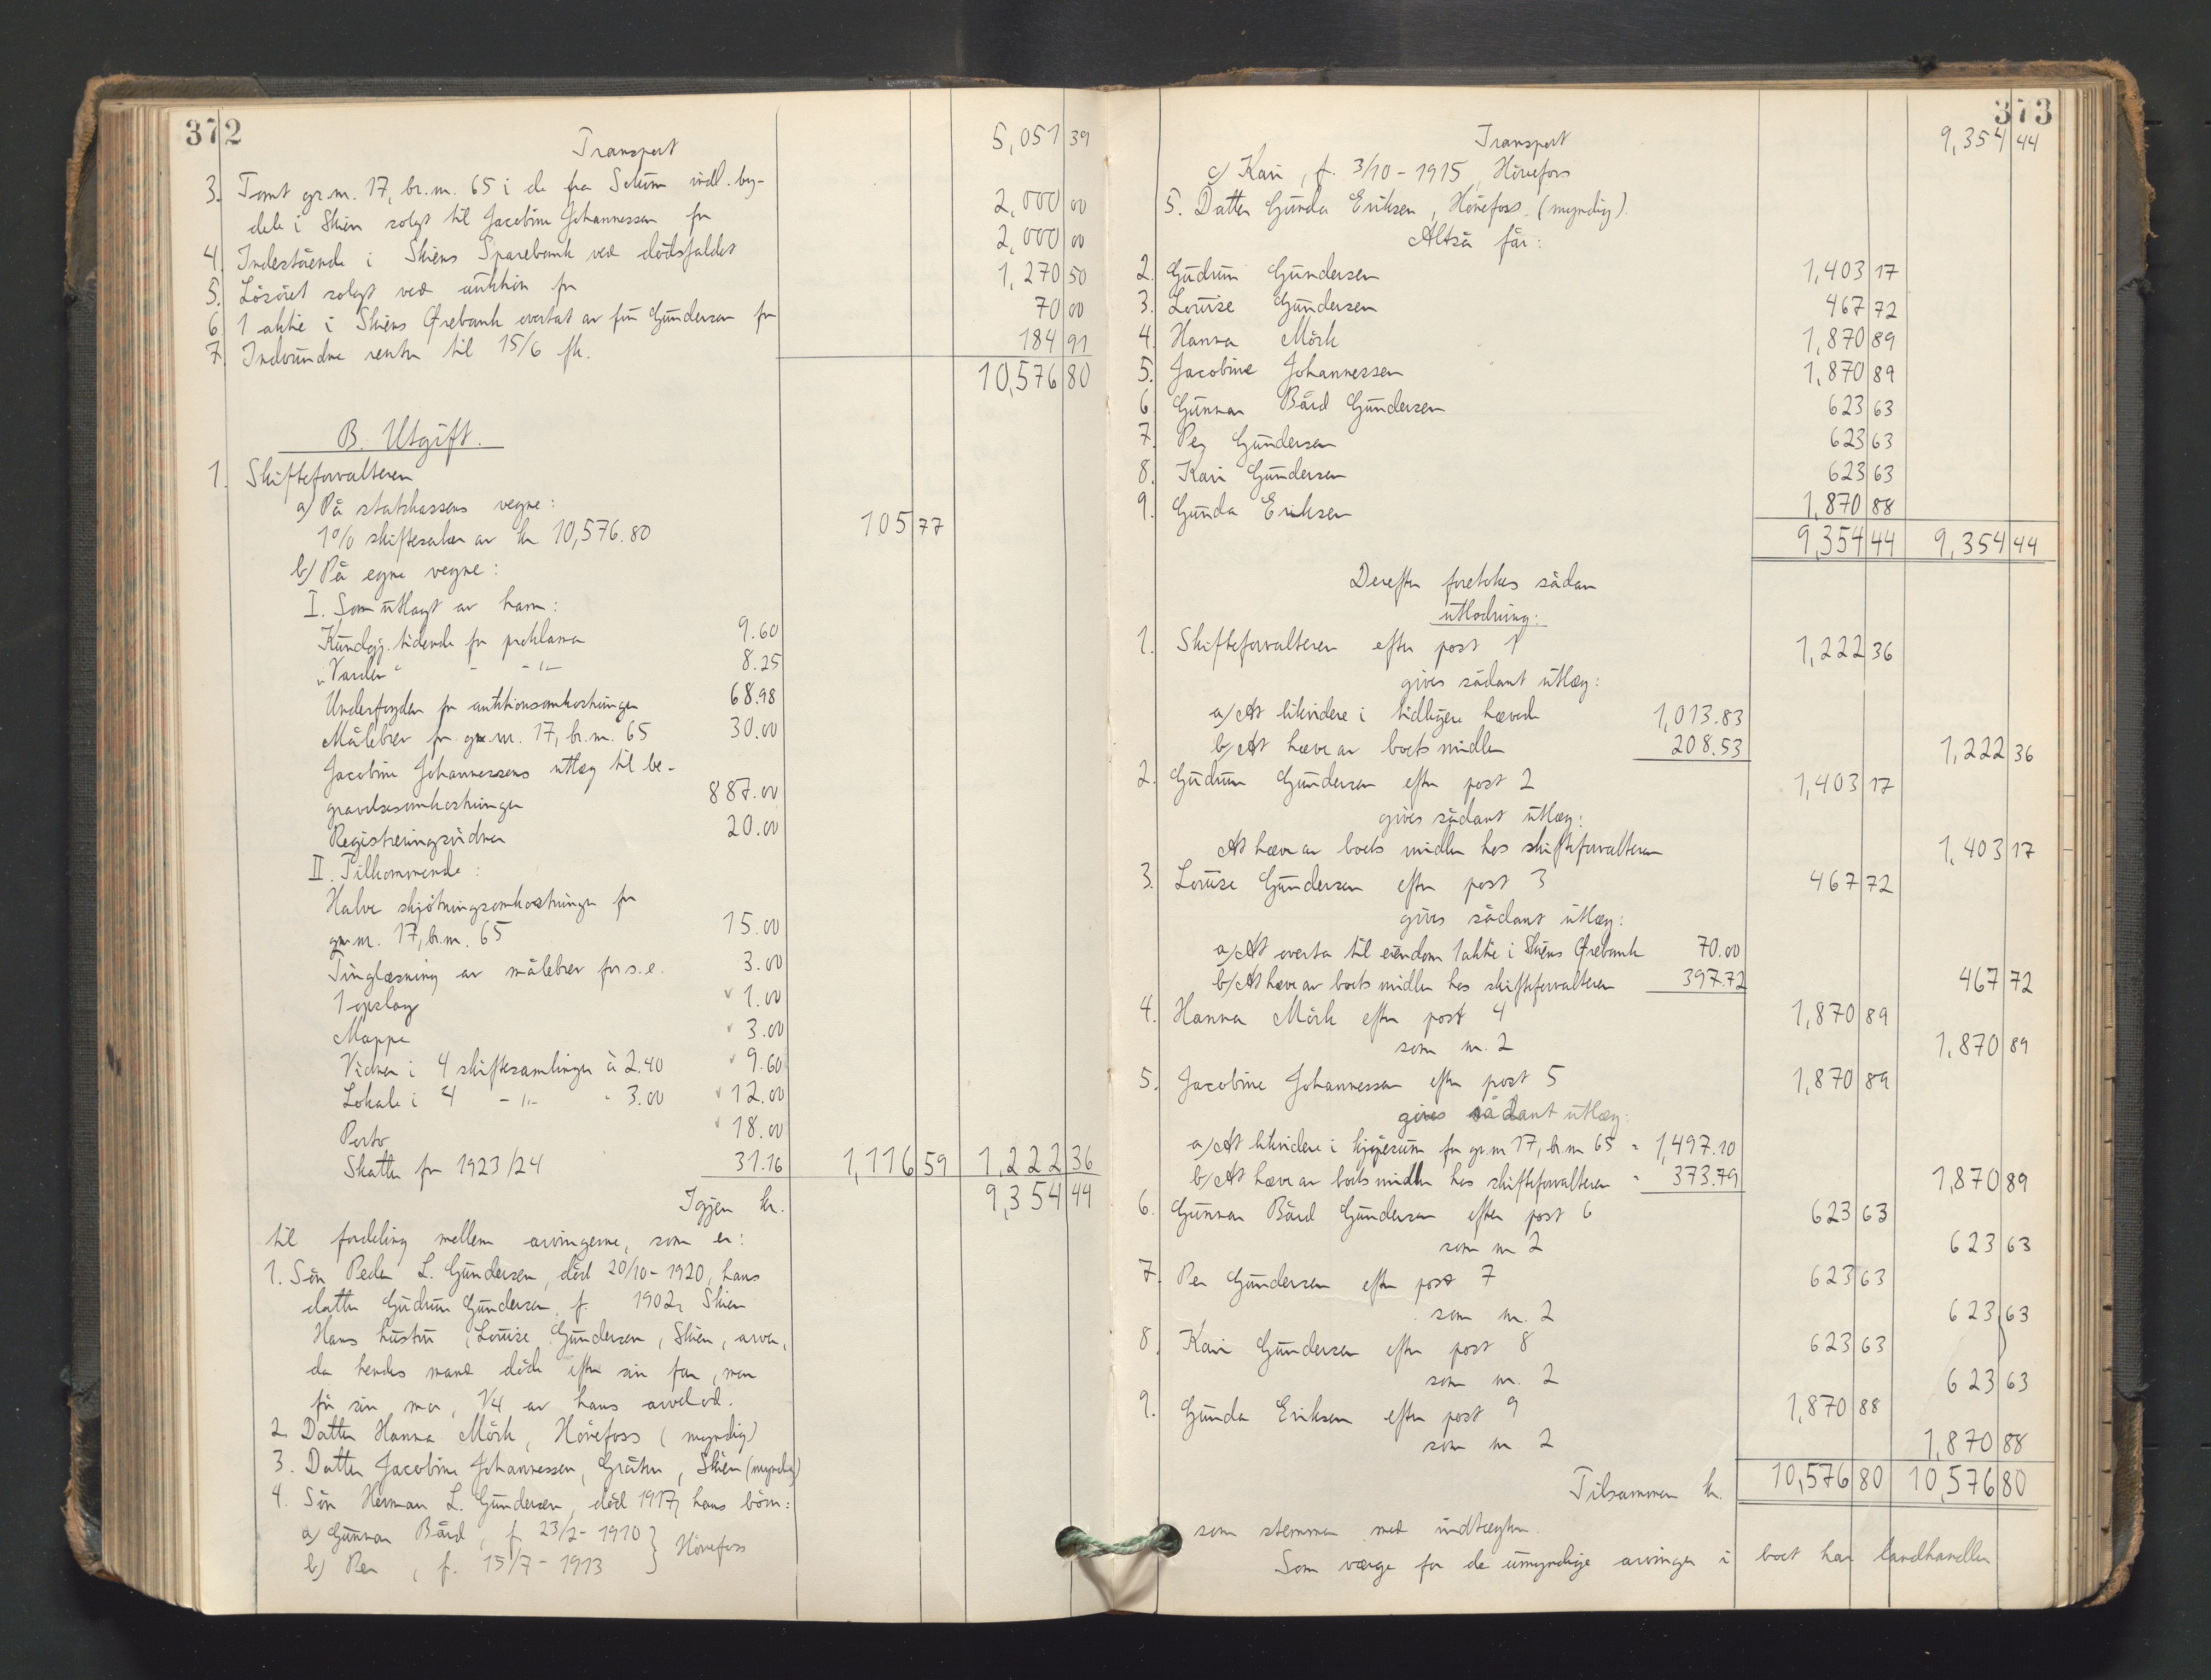 372
Transport 5,051 39
3. Tomt gr.nr. 17, br.nr. 65 i de fra Solum indl. by-
dele i Skien solgt til Jacobine Johannessen for 2,000 00
4. Indestående i Skiens Sparebank ved dödsfaldet 2,000 00
5. Lösöret solgt ved auktion for 1,270 50
6. 1 aktie i Skiens Örebank overtat av fru Gundersen for 70 00
7. Indvundne renter til 15/6 ffk. 184 91
10,576 80
B. Utgift.
1. Skifteforvalteren
a) På statskassens vegne:
1% skiftesalær av kr 10,576.80 105 77
b) På egne vegne:
I. Som utlagt av ham:
Kundgj. tidende for proklama 9.60
"Varden" - -"- 8.25
Underfogden for auktionsomkostninger 68.98
Målebrev for gr.nr. 17, br.nr. 65 30.00
Jacobine Johannessens utlæg til be-
gravelsesomkostninger 887.00
Registreringsvidner 20.00
II. Tilkommende:
Halve skjötningsomkostninger for
gr.nr. 17, br.nr. 65 15.00
Tinglæsning av målebrev for s.e. 3.00
1 opslag 1.00
Mappe 3.00
Vidner i 4 skiftesamlinger à 2.40 9.60
Lokale i 4 -"- - 3.00 12.00
Porto 18.00
Skatter for 1923/24 31.16 1,116 59 1,222 36
Igjen kr. 9,354 44
til fordeling mellem arvingerne, som er:
1. Sön Peder L. Gundersen, död 20/10-1920, hans
datter Gudrun Gundersen, f. 1902, Skien
Hans hustru, Louise Gundersen, Skien, arver,
da hendes mand döde efter sin far, men
för sin mor, 1/4 av hans arvelod.
2. Datter Hanna Mörk, Hönefoss (myndig)
3. Datter Jacobine Johannessen, Gråten, Skien (myndig)
4. Sön Herman L. Gundersen, död 1917, hans börn:
a) Gunnar Bård, f. 23/2-1910 } Hönefoss
b) Per, f. 15/7-1913
373
Transport 9,354 44
c) Kari, f. 3/10-1915, Hönefoss
5. Datter Gunda Eriksen, Hönefoss. (myndig).
Altså får:
2. Gudrun Gundersen 1,403 17
3. Louise Gundersen 467 72
4. Hanna Mörk 1,870 89
5. Jacobine Johannessen 1,870 89
6. Gunnar Bård Gundersen 623 63
7. Per Gundersen 623 63
8. Kari Gundersen 623 63
9. Gunda Eriksen 1,870 88
9,354 44 9,354 44
Derefter foretokes sådan
utlodning:
1. Skifteforvalteren efter post 1 1,222 36
gives sådant utlæg:
a) At likvidere i tidligere hævede 1,013.83
b) At hæve av boets midler 208.53 1,222 36
2. Gudrun Gundersen efter post 2 1,403 17
gives sådant utlæg:
At hæve av boets midler hos skifteforvalteren 1,403 17
3. Louise Gundersen efter post 3 467 72
gives sådant utlæg:
a) At overta til eiendom 1 aktie i Skiens Örebank 70.00
b) At hæve av boets midler hos skifteforvalteren 397.72 467 72
4. Hanna Mörk efter post 4 1,870 89
som nr. 2 1,870 89
5. Jacobine Johannessen efter post 5 1,870 89
gives sådant utlæg:
a) At likvidere i kjöpesum for gr.nr 17, br.nr 65 - 1,497.10
b) At hæve av boets midler hos skifteforvalteren - 373.79 1,870 89
6. Gunnar Bård Gundersen efter post 6 623 63
som nr 2 623 63
7. Per Gundersen efter post 7 623 63
som nr. 2 623 63
8. Kari Gundersen efter post 8 623 63
som nr. 2 623 63
9. Gunda Eriksen efter post 9 1,870 88
som nr 2 1,870 88
Tilsammen kr. 10,576 80 10,576 80
som stemmer med indtægten.
Som værge for de umyndige arvinger i boet har landhandler